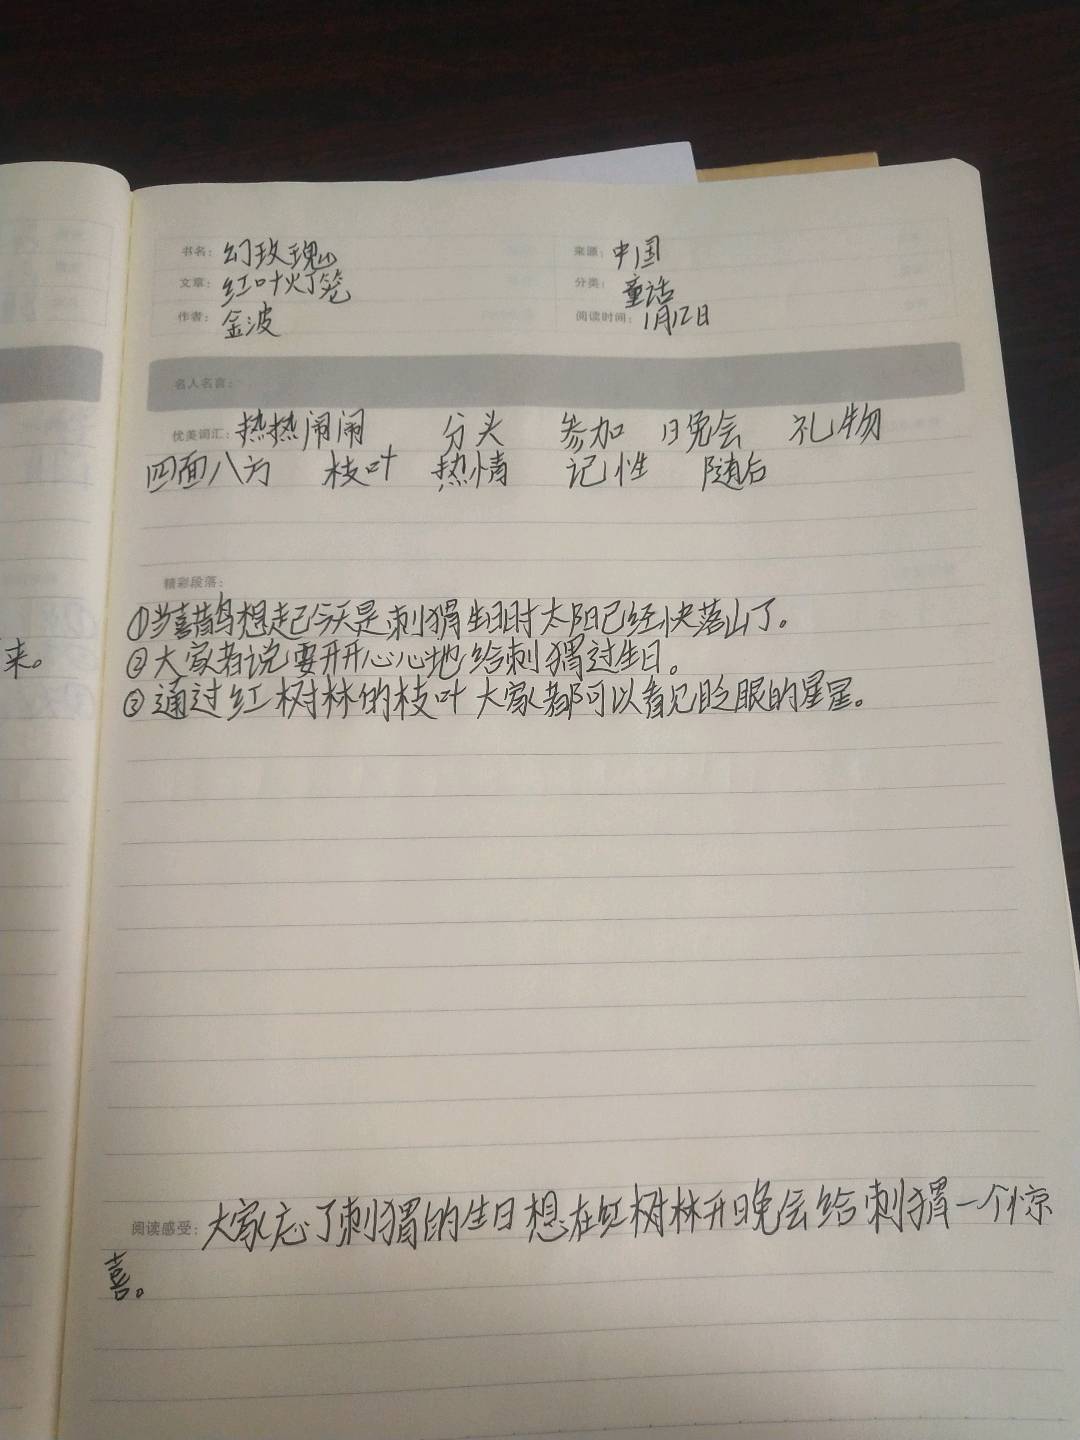 书名：幻玫瑰山
来源：中国
文章：红叶灯笼
分类：童话
作者：金波
阅读时间：1月12日
名人名言：
优美词汇：热热闹闹 分头 参加 晚会 礼物
四面八方 枝叶 热情 记性 随后
精彩段落：
①当喜鹊想起今天是刺猬生日时太阳已经快落山了。
来。
②大家都说要开开心心地给刺猬过生日。
③通过红树林的枝叶大家都可以看见眨眼的星星。
阅读感受：大家忘了刺猬的生日想在红树林开晚会给刺猬一个惊
喜。